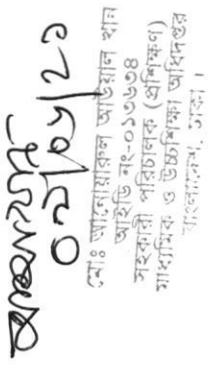 ০২/০৮/২১
মোঃ আনোয়ারুল আউয়াল খান
আইডি নং-০১৩৬৩৪
সহকারী পরিচালক (প্রশিক্ষণ)
মাধ্যমিক ও উচ্চশিক্ষা অধিদপ্তর
বাংলাদেশ, ঢাকা।